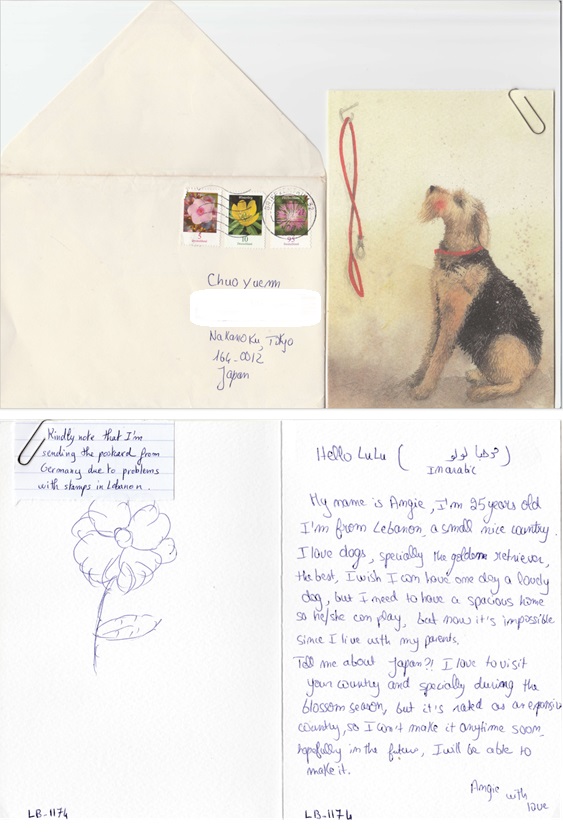 5
10
95
Chuo Yuenn
Nakano Ku, Tokyo
164-0012
Japan
Kindly note that I'm
sending the postcard from
Germany due to problems
with stamps in Lebanon.
Hello LuLu ( مرحبا لولو )
In arabic
My name is Angie, I'm 25 years old
I'm from Lebanon, a small nice country.
I love dogs, specially the golden retriever,
the best, I wish I can have one day a lovely
dog, but I need to have a spacious home
so he/she can play, but now it's impossible
since I live with my parents.
Tell me about Japan?! I love to visit
your country and specially during the
blossom season, but it's rated as an expensive
country, so I can't make it anytime soon,
hopefully in the future, I will be able to
make it.
Angie with
love
LB-1174
LB-1174